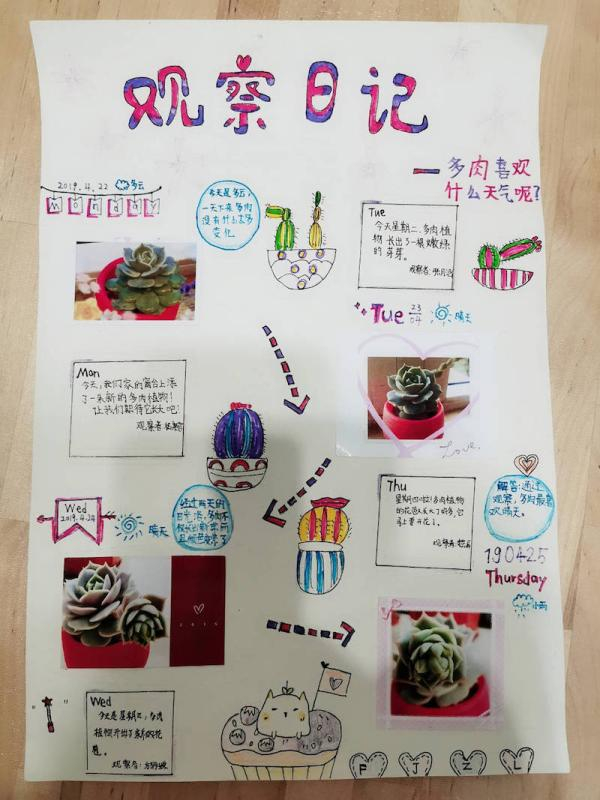 观察日记
一多肉喜欢
什么天气呢?
2019.4.22 多云
Monday
今天是多云,
一天下来多肉
没有什么太多
变化。
Tue
今天星期二,多肉植
物长出了一根嫩绿
的芽芽。
观察者:
Tue 23/04 晴天
Mon
今天,我们家的窗台上添
了一朵新的多肉植物!
让我们期待它长大吧!
观察者
Love.
Wed
2019.4.24
晴天
经过两天的
日光浴,多肉不
Thu
星期四啦!多肉植物
的花苞又长大了好多,它
马上要开花了。
观察者
解答:通过
观察,多肉最喜
欢晴天。
190425
Thursday
小雨
2019
Wed
今天是星期三,多肉
植物开出了新的花
苞。
观察者:
F J Z L